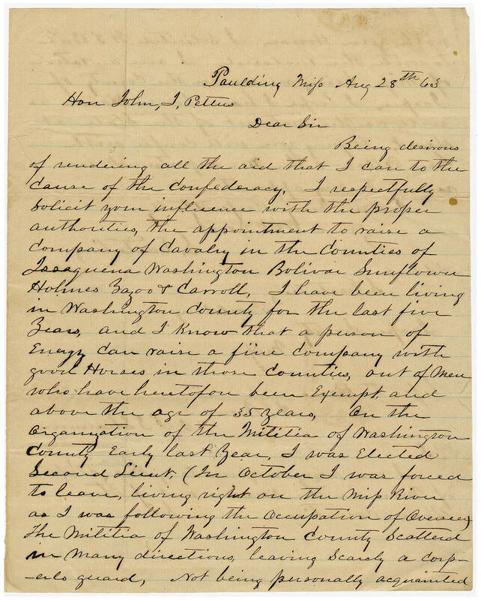 Paulding Miss Aug 28th 63
Hon John, J, Pettus
Dear Sir
Being desirous
of rendering all the aid that I can to the
Cause of the Confederacy, I respectfully
Solicit your influence with the proper
authorities, the appointment to raise a
Company of Cavalry in the Counties of
Issaquena Washington Bolivar Sunflower
Holmes Yazoo & Carroll, I have been living
in Washington County for the last five
Years, and I Know that a person of
Energy can raise a fine Company with
good Horses in those Counties, out of Men
who have heretofore been Exempt and
above the age of 35 years, On the
Organization of the Militia of Washington
County Early last Year, I was Elected
Second Lieut, (In October I was forced
to leave, living right on the Miss River
as I was following the Occupation of Overseer)
The Militia of Washington County Scattered
in Many directions, leaving Scarcely a Corp-
-erls guard, Not being personally acquainted